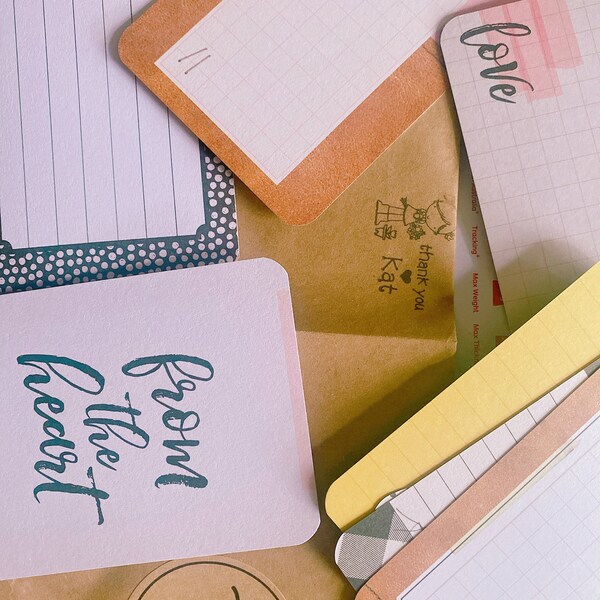 love
thank you
Kat
Tracking*
Max Weight
from
the
heart